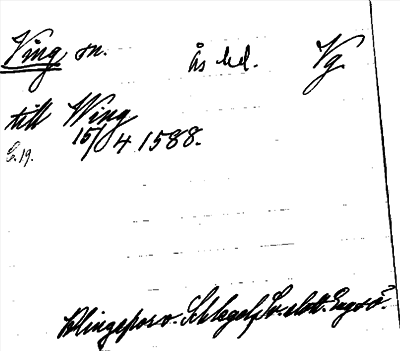 Ving sn. Ås hd. Vg.
till Wing
15/4 1588.
G. 19.
Klingspor o. Schlegel, Sv. slott. Engsö.